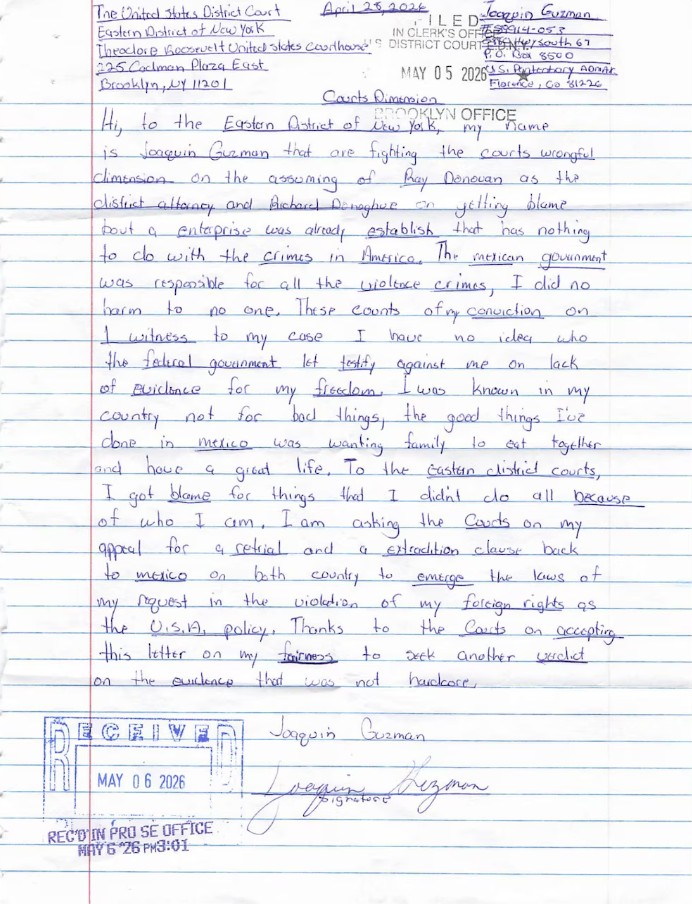 The United States District Court
Eastern District of New York
Theodore Roosevelt United States Courthouse
225 Cadman Plaza East
Brooklyn, NY 11201
April 28, 2026
FILED
IN CLERK'S OFFICE
U.S. DISTRICT COURT E.D.N.Y.
MAY 05 2026
BROOKLYN OFFICE
Joaquin Guzman
914-053
South 67
P.O. Box 8500
U.S. Penitentiary ADMAX
Florence, CO 81226
Courts Dimension
Hi, to the Eastern District of New York, my name
is Joaquin Guzman that are fighting the courts wrongful
dimension on the assuming of Ray Donovan as the
district attorney and Richard Donoghue on yelling blame
bout a enterprise was already establish that has nothing
to do with the crimes in America. The mexican government
was responsible for all the violence crimes, I did no
harm to no one. These counts of my conviction on
1 witness to my case I have no idea who
the federal government let testify against me on lack
of evidence for my freedom. I was known in my
country not for bad things, the good things I've
done in mexico was wanting family to eat together
and have a great life. To the Eastern district courts,
I got blame for things that I didn't do all because
of who I am. I am asking the Courts on my
appeal for a retrial and a extradition clause back
to mexico on both country to emerge the laws of
my request in the violation of my foreign rights as
the U.S.A. policy. Thanks to the Courts on accepting
this letter on my fairness to seek another verdict
on the evidence that was not hardcore.
Joaquin Guzman
Joaquin Guzman
signature
RECEIVED
MAY 06 2026
REC'D IN PRO SE OFFICE
MAY 6 '26 PM3:01